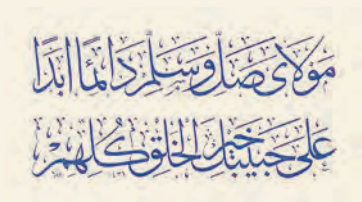 مَوْلَايَ صَلِّ وَسَلِّمْ دَائِمًا اَبَدًا
عَلَى حَبِيبِكَ خَيْرِ الْخَلْقِ كُلِّهِمِ